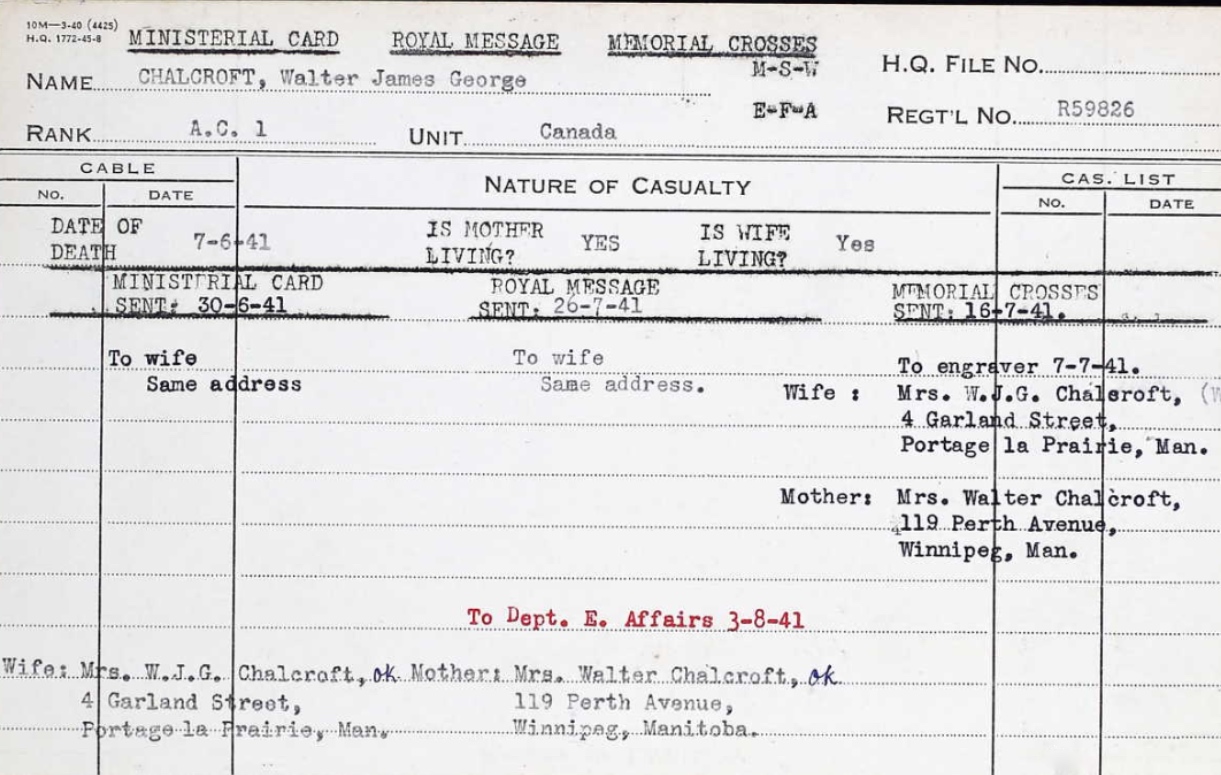 10M—3-40 (4425)
H.Q. 1772-45-8
MINISTERIAL CARD ROYAL MESSAGE MEMORIAL CROSSES
M-S-W
H.Q. FILE NO.
NAME CHALCROFT, Walter James George
E-F-A
REGT'L NO. R59826
RANK A.C. 1 UNIT Canada
CABLE NATURE OF CASUALTY CAS. LIST
NO. DATE NO. DATE
DATE OF IS MOTHER IS WIFE
DEATH 7-6-41 LIVING? YES LIVING? Yes
MINISTERIAL CARD ROYAL MESSAGE MEMORIAL CROSSES
SENT: 30-6-41 SENT: 26-7-41 SENT: 16-7-41.
To wife To wife To engraver 7-7-41.
Same address Same address. Wife : Mrs. W.J.G. Chalcroft, (W
4 Garland Street,
Portage la Prairie, Man.
Mother: Mrs. Walter Chalcroft,
119 Perth Avenue,
Winnipeg, Man.
To Dept. E. Affairs 3-8-41
Wife: Mrs. W.J.G. Chalcroft, ok Mother: Mrs. Walter Chalcroft, ok
4 Garland Street, 119 Perth Avenue,
Portage la Prairie, Man. Winnipeg, Manitoba.